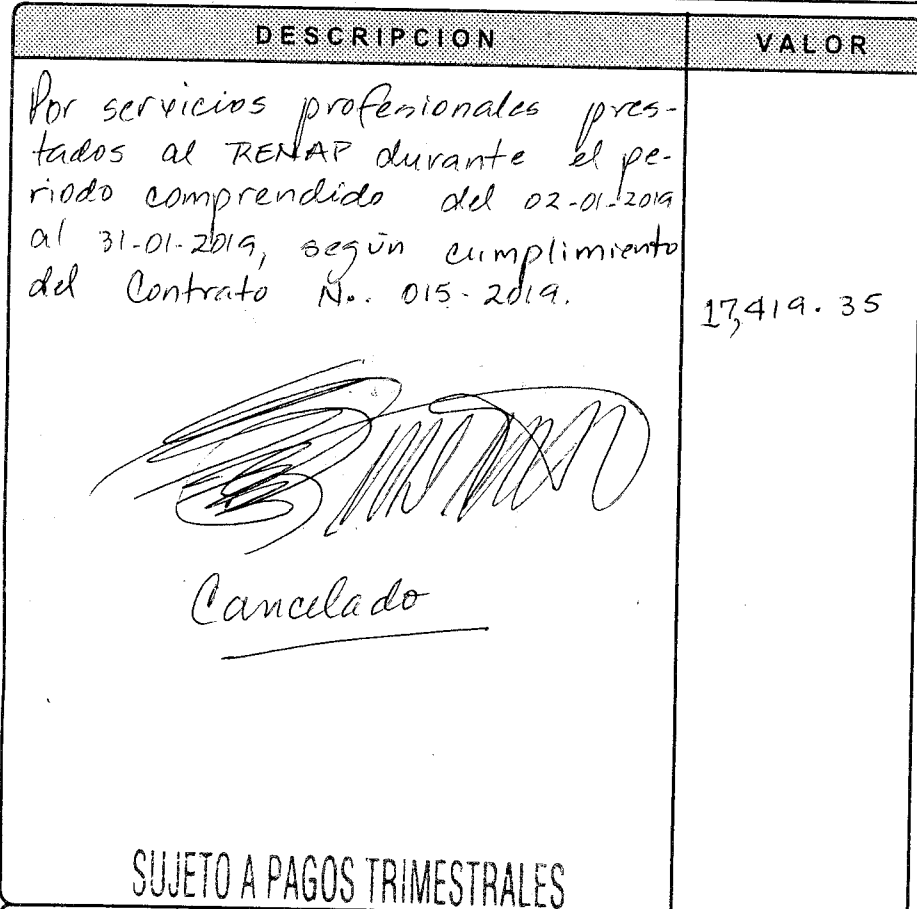 DESCRIPCION VALOR
Por servicios profesionales pres-
tados al RENAP durante el pe-
riodo comprendido del 02-01-2019
al 31-01-2019, según cumplimiento
del Contrato No. 015-2019.
17,419.35
Cancelado
SUJETO A PAGOS TRIMESTRALES